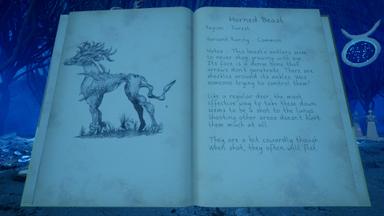 Horned Beast
Region : Forest
Harvest Rarity : Common
Notes : This beast's antlers seem
to never stop growing with age.
Its face is a dense bone that
arrows don't penetrate. There are
shackles around its ankles. Was
someone trying to control them?
Like a regular deer, the most
effective way to take these down
seems to be a shot to the lungs.
Shooting other areas doesn't hurt
them much at all.
They are a bit cowardly though.
When shot, they often will flee.